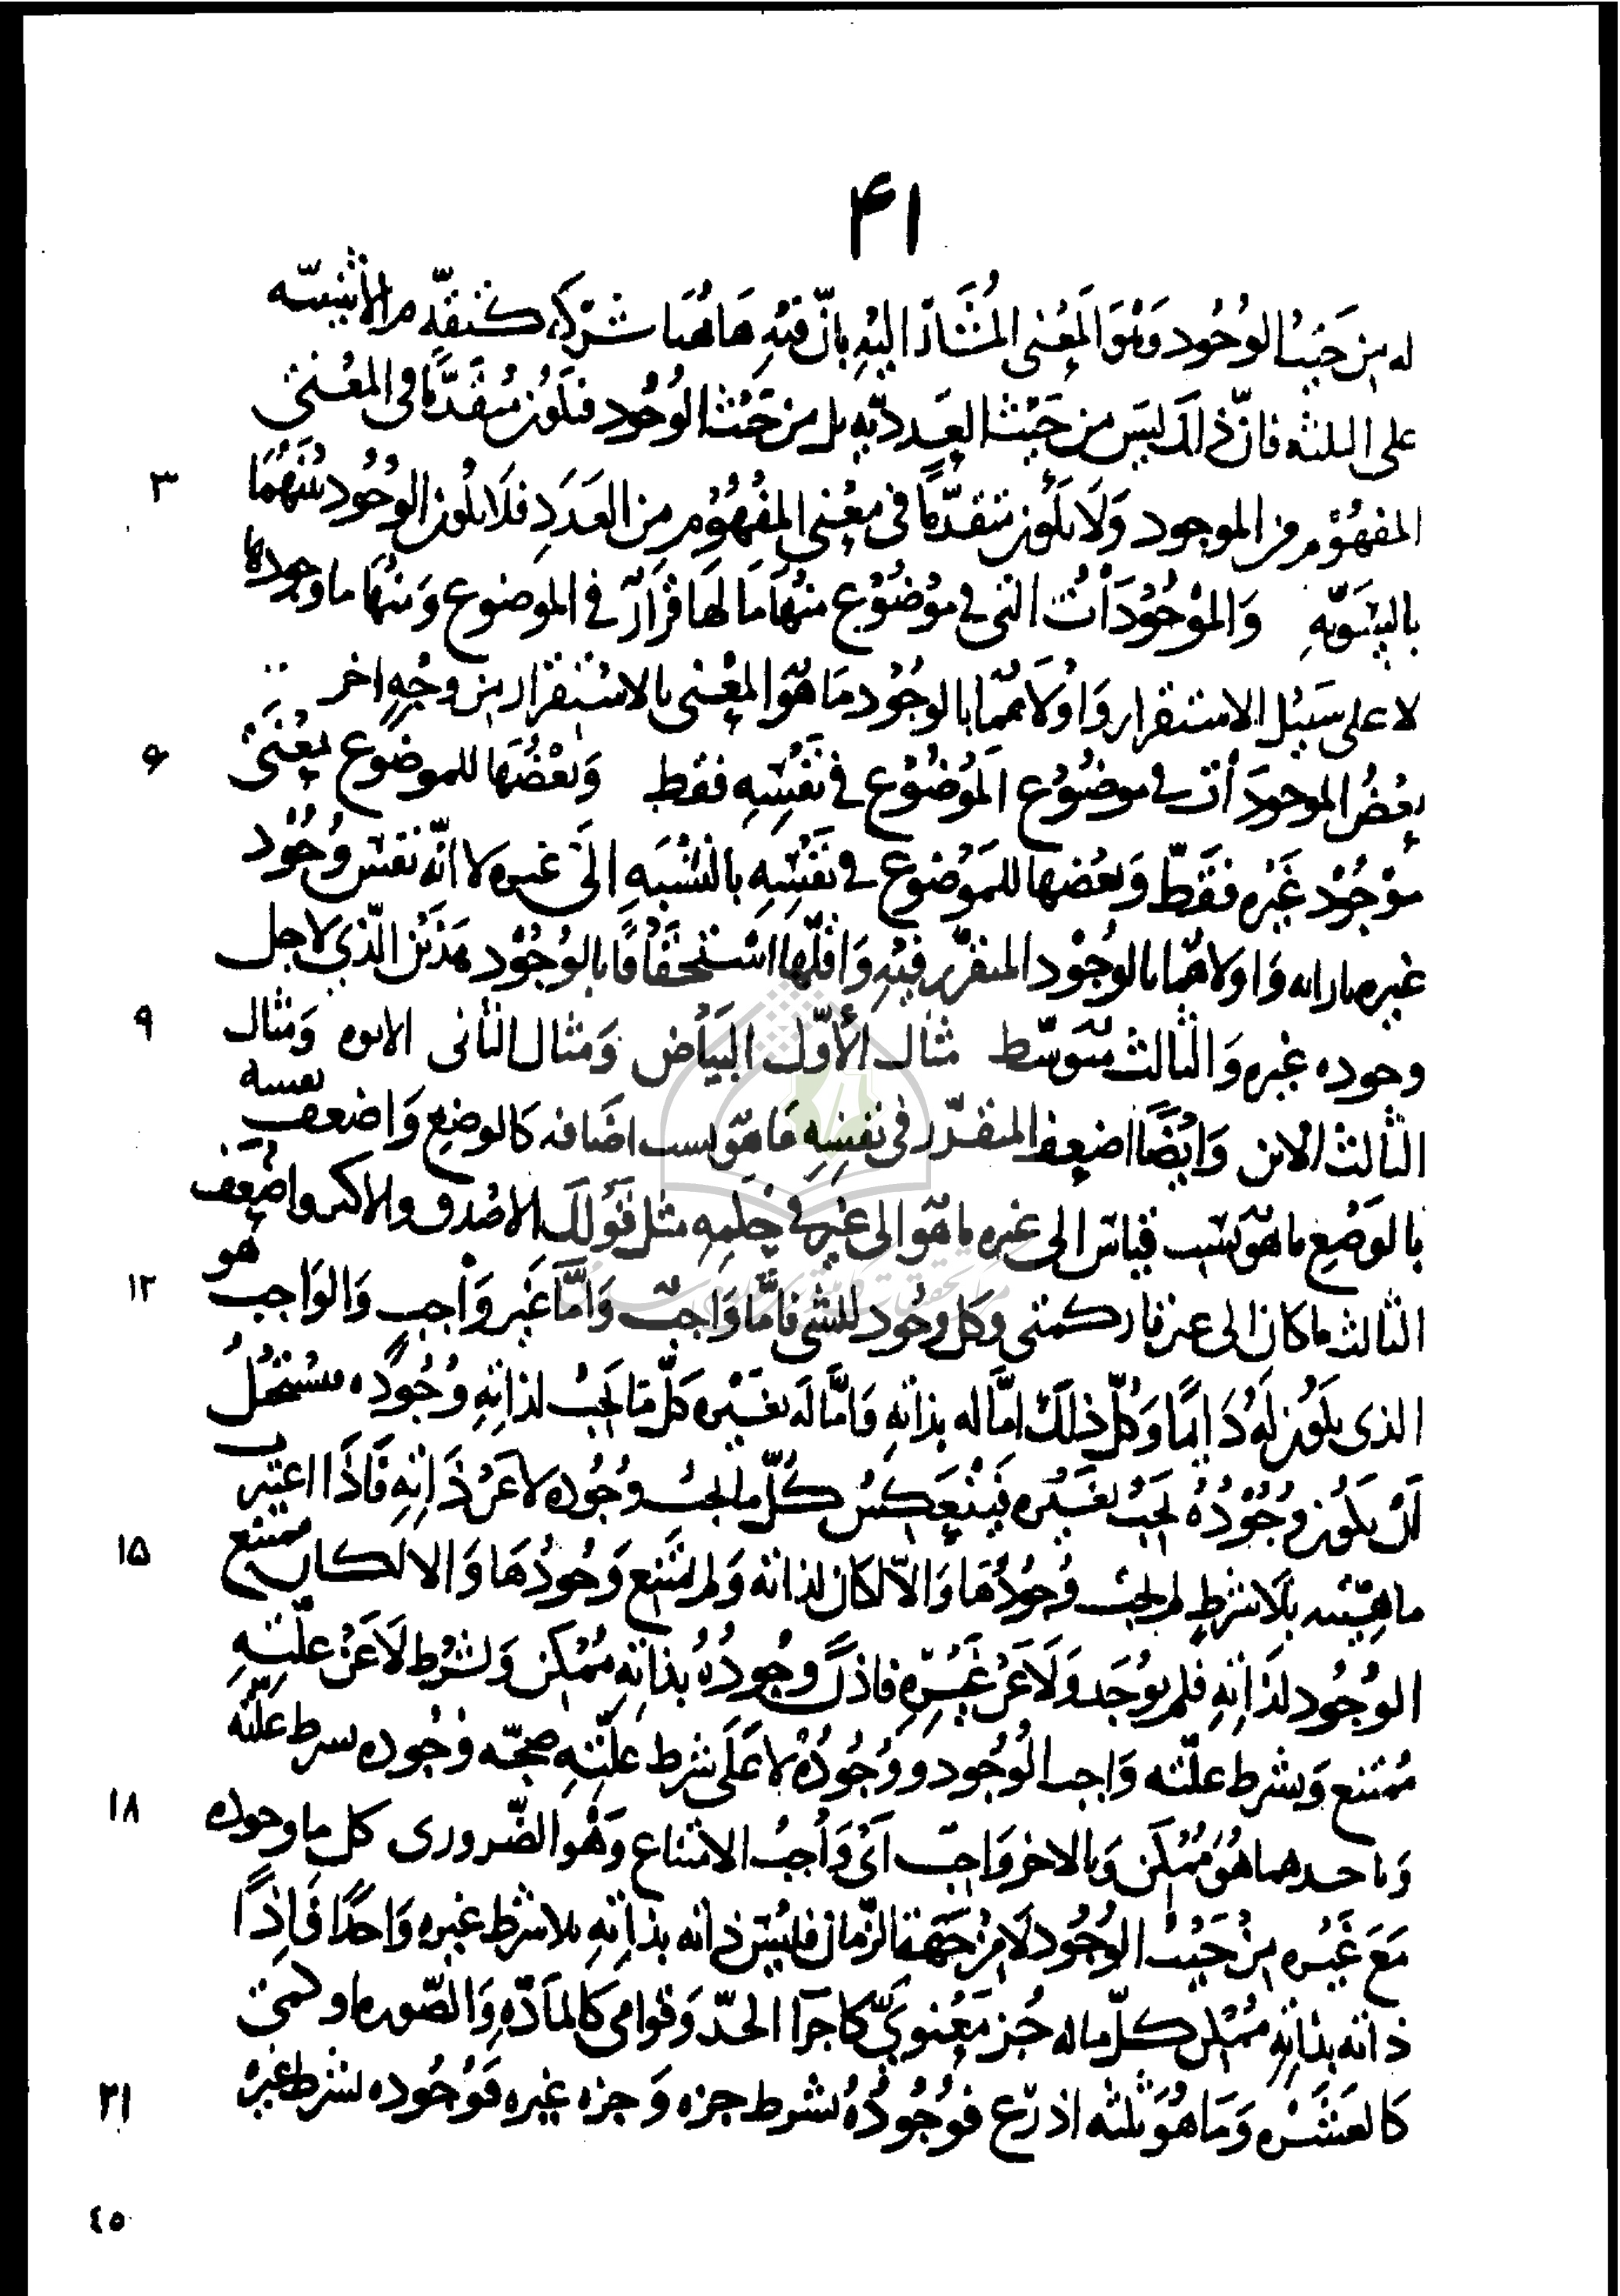 ۴۱
له من حيث الوجود وهو المعنى المشار اليه بان فيه هاهنا شركا كتقدم الاثنينيه
على الثلثه فان ذلك ليس من حيث العدديه بل من حيث الوجود فيكون متقدما فى المعنى
٣
المفهوم من الموجود ولا يكون متقدما فى معنى المفهوم من العدد فلا يكون الوجود بينهما
بالسويه والموجودات التى فى موضوع منها ما لها قرار فى الموضوع ومنها ما وجودها
لا على سبيل الاستقرار واولاهما بالوجود ما هو المعنى بالاستقرار من وجه اخر
۶
بعض الموجودات فى موضوع الموضوع فى نفسه فقط وبعضها للموضوع بمعنى
موجود غيره فقط وبعضها للموضوع فى نفسه بالنسبه الى غيره لا انه نفس وجود
غيره بازائه واولاهما بالوجود المتقرر فيه واقلها استحقاقا بالوجود هذين الذى لاجل
٩
وجوده غيره والثالث متوسط مثال الاول البياض ومثال الثانى الابوه ومثال
الثالث الاين وايضا اضعف المتقرر فى نفسه ما هو بسبب اضافه كالوضع واضعف نفسه
بالوضع ما هو بسبب قياس الى غيره ما هو الى غير فى حكمه مثل قولك الاصدق والاكبر واضعف
١٢
الثالث ما كان الى غير قار كمتى وكل وجود للشى فاما واجب واما غير واجب والواجب هو
الذى يكون له دايما وكل ذلك اما له بذاته واما له بغيره كل ما يجب لذاته وجوده فيستحيل
ان يكون وجوده يجب بغيره فينعكس كل ما يجب وجوده لا عن ذاته فاذا اعتبرت
١۵
ماهيته بلا شرط لم يجب وجودها والا لكان لذاته ولم يمتنع وجودها والا لكان ممتنع
الوجود لذاته فلم يوجد ولا عن غيره فاذن وجوده بذاته ممكن وبشرط لا عن علته
ممتنع وبشرط علته واجب الوجود ووجوده لا على شرط علته صحه وجوده بشرط علته
١٨
وباحدهما هو ممكن وبالاخر واجب اى واجب الامتناع وهو الضرورى كل ما وجوده
مع غيره من حيث الوجود لا من جهة الزمان فليس ذاته بذاته بلا شرط غيره واحدا فاذا
ذاته بذاته ممكن كل ما له جز معنوى كاجزا الحد وقوامى كالماده والصوره او كمى
٢١
كالعشره وما هو ثلثه اذرع فوجوده بشرط جزه وجزه غيره فوجوده بشرط غيره
٤٥